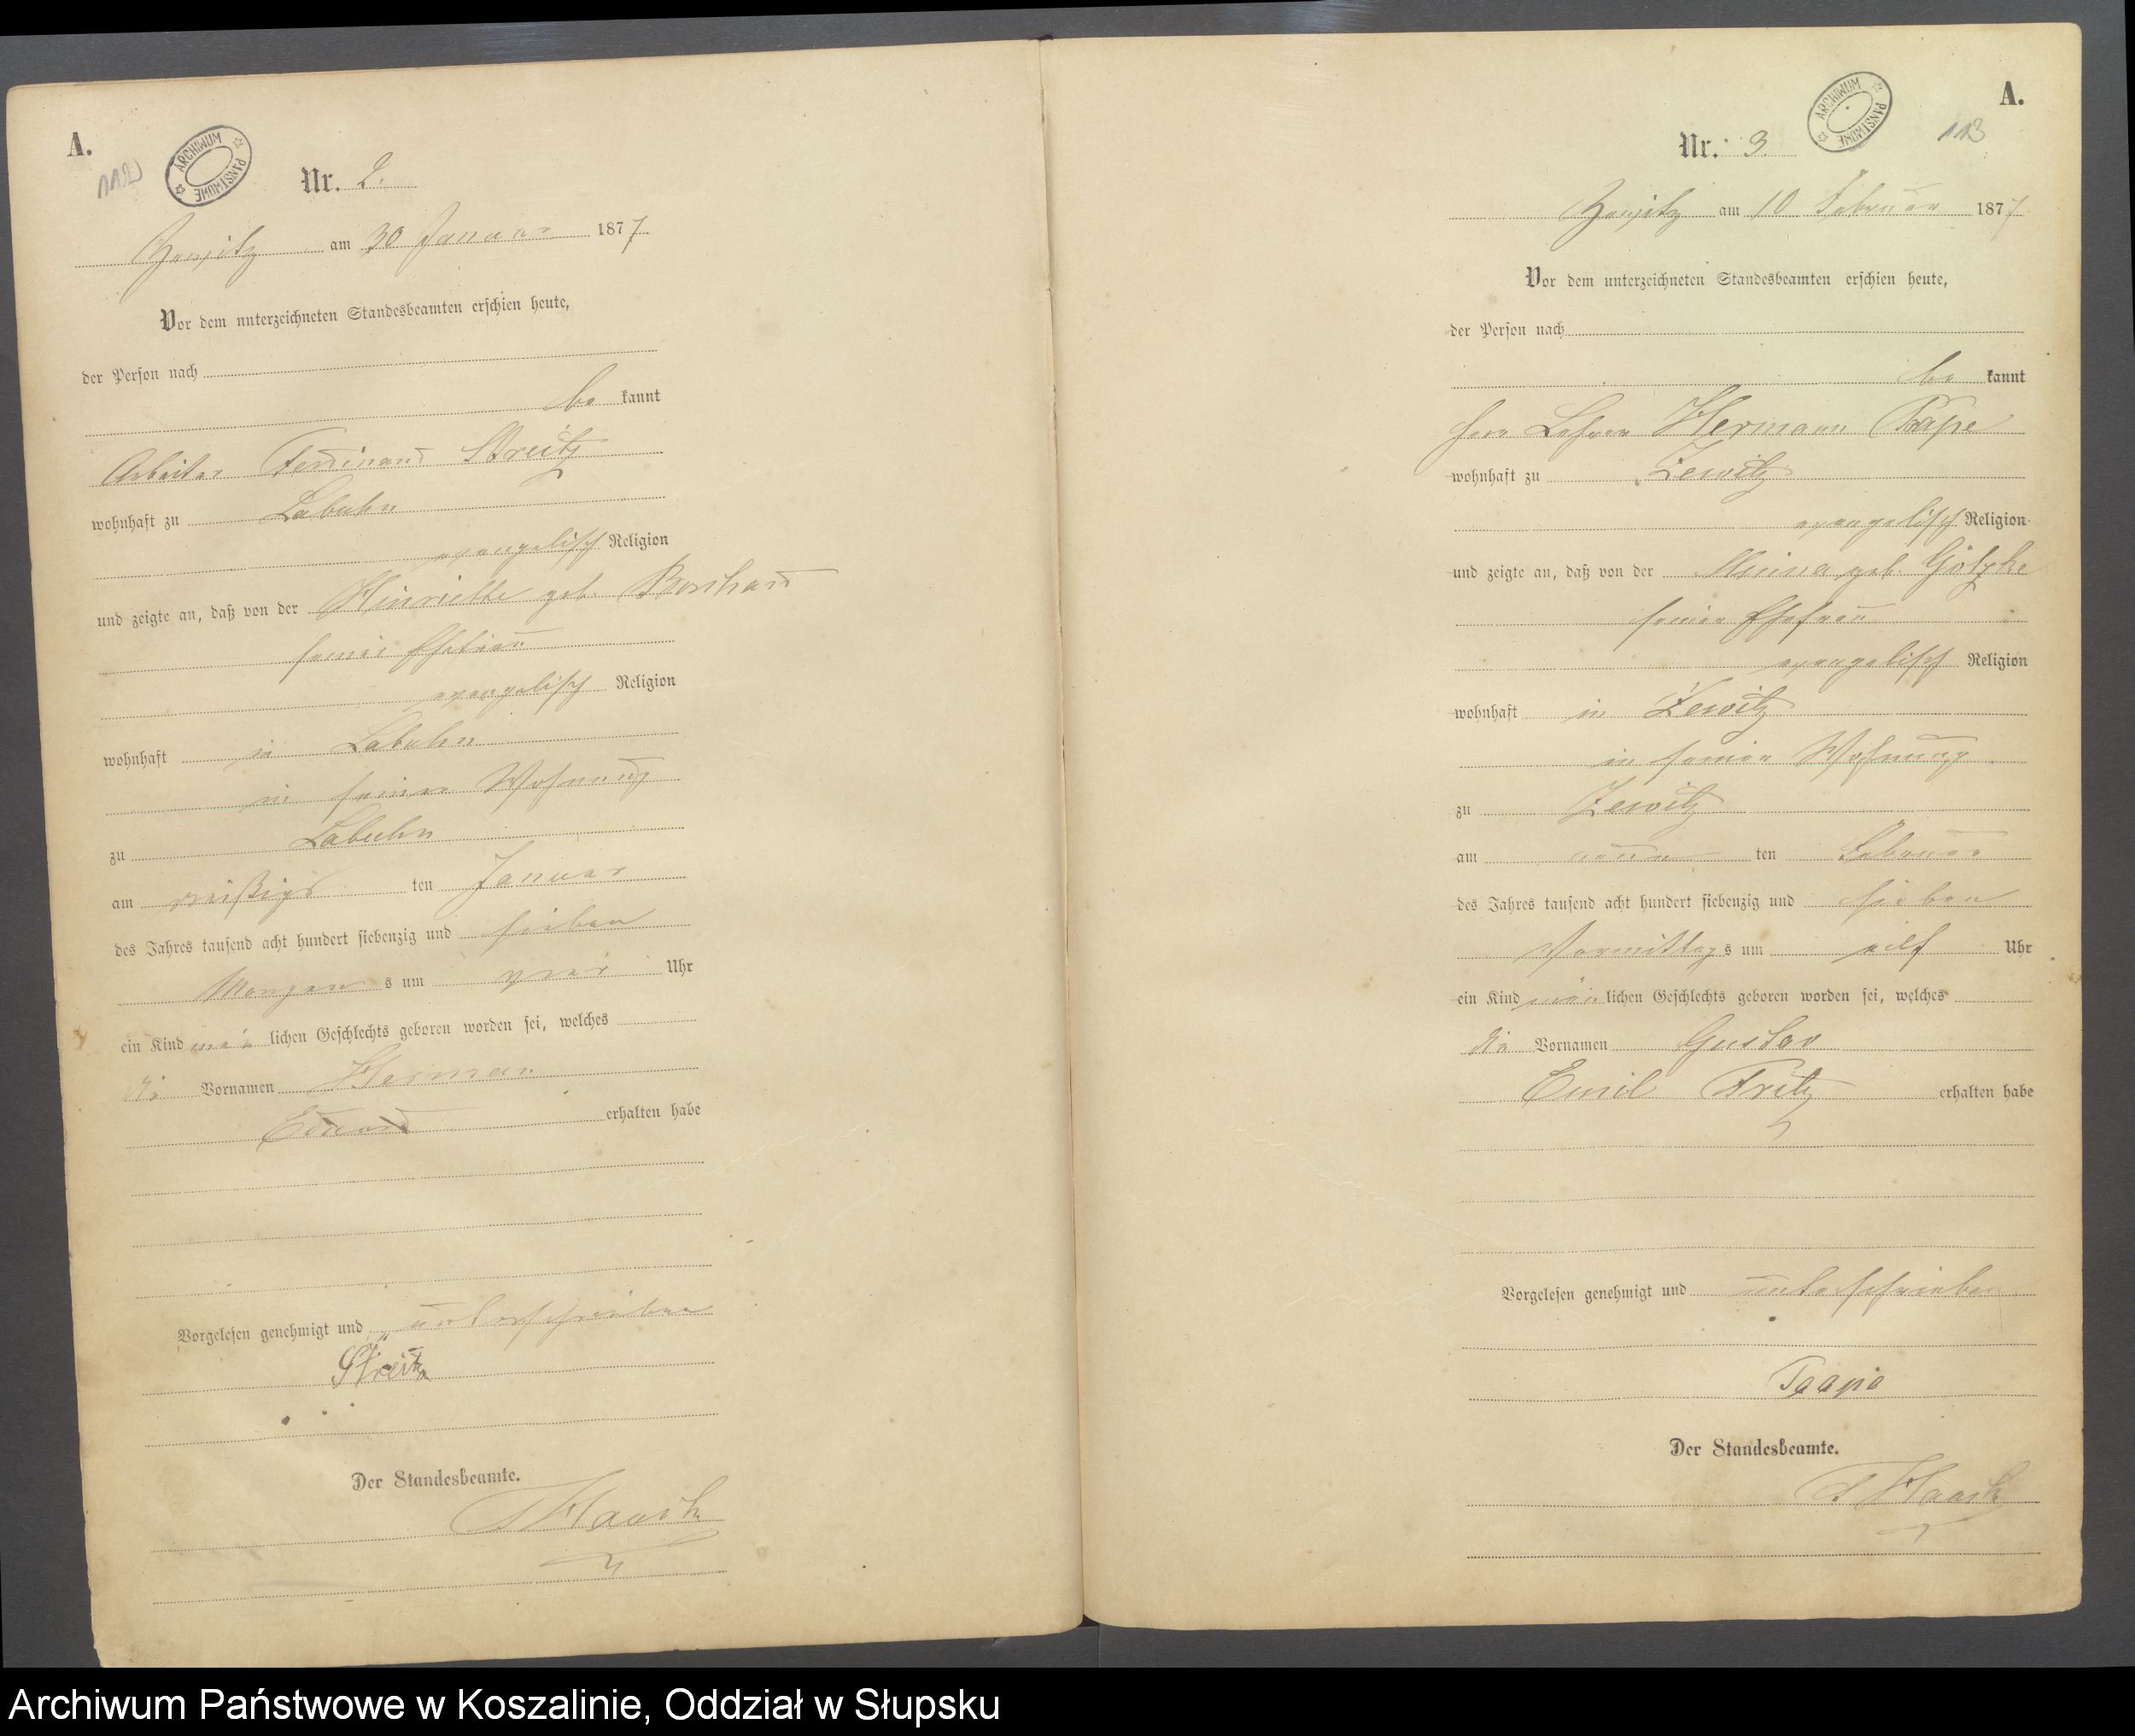 A.
112
ARCHIWUM PAŃSTWOWE
Nr. 2.
Zewitz am 30 Januar 1877
Vor dem unterzeichneten Standesbeamten erschien heute,
der Person nach
be kannt
Arbeiter Ferdinand Streitz
wohnhaft zu Labuhn
evangelisch Religion
und zeigte an, daß von der Hinriette geb. Borchard
seiner Ehefrau
evangelisch Religion
wohnhaft in Labuhn
in seiner Wohnung
zu Labuhn
am dreißigs ten Januar
des Jahres tausend acht hundert siebenzig und sieben
Morgen s um Uhr
ein Kind män lichen Geschlechts geboren worden sei, welches
die Vornamen Herman
Eduard erhalten habe
Vorgelesen genehmigt und unterschrieben
Streitz
Der Standesbeamte.
Haack
A.
113
ARCHIWUM PAŃSTWOWE
Nr. 3.
Zewitz am 10 Februar 1877
Vor dem unterzeichneten Standesbeamten erschien heute,
der Person nach
be kannt
Herr Lehrer Hermann Pape
wohnhaft zu Zewitz
evangelisch Religion
und zeigte an, daß von der Minna geb. Götzke
seiner Ehefrau
evangelisch Religion
wohnhaft in Zewitz
in seiner Wohnung
zu Zewitz
am neun ten Februar
des Jahres tausend acht hundert siebenzig und sieben
Vormittag s um eilf Uhr
ein Kind män lichen Geschlechts geboren worden sei, welches
die Vornamen Gustav
Emil Fritz erhalten habe
Vorgelesen genehmigt und unterschrieben
Paape
Der Standesbeamte.
Haack
Archiwum Państwowe w Koszalinie, Oddział w Słupsku